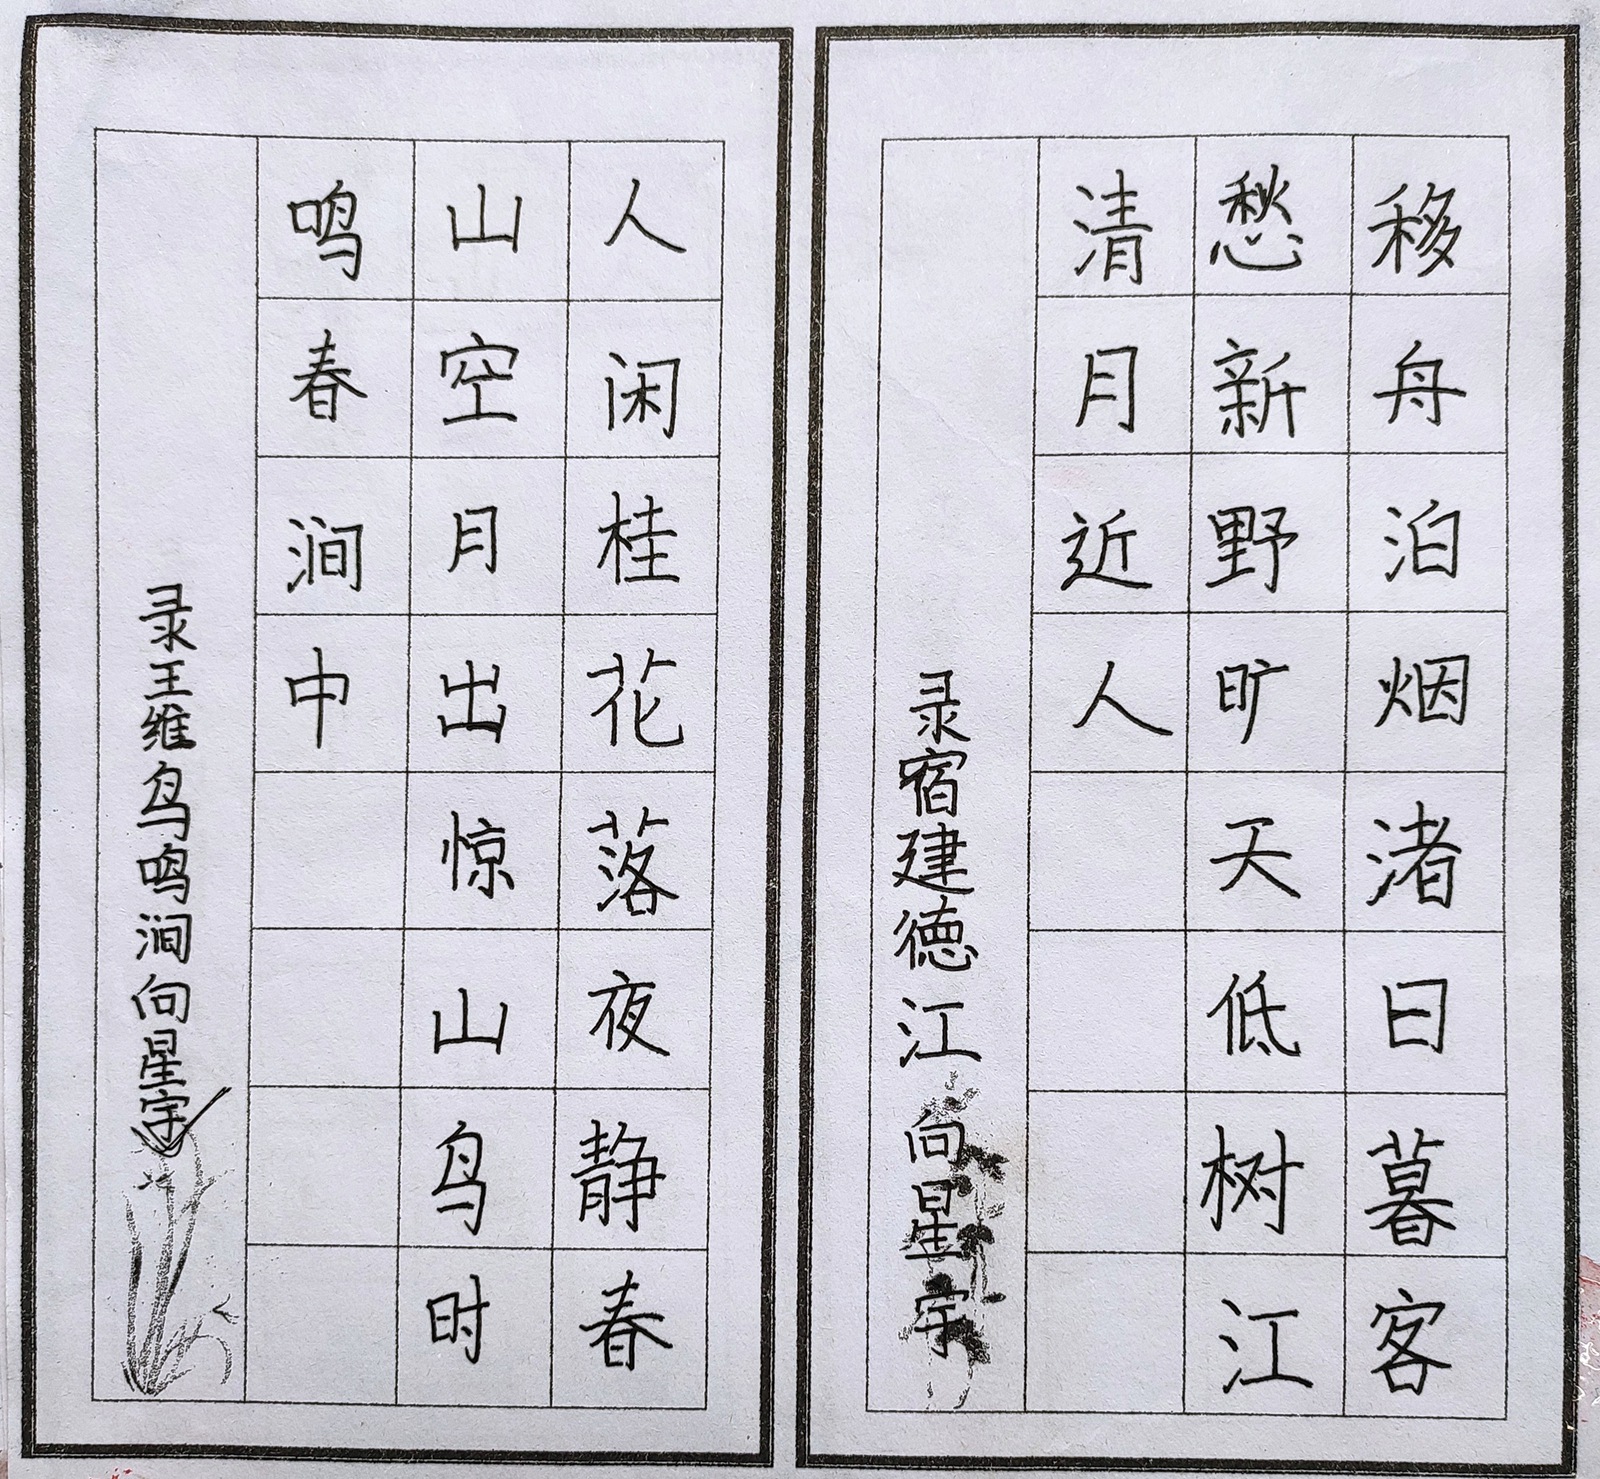 移舟泊烟渚日暮客
愁新野旷天低树江
清月近人
录宿建德江 向星宇
人闲桂花落夜静春
山空月出惊山鸟时
鸣春涧中
录王维鸟鸣涧向星宇